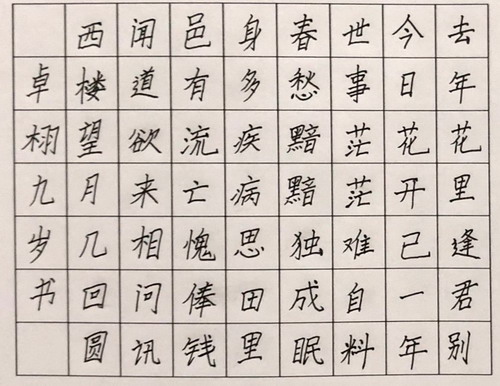 去年花里逢君别
今日花开已一年
世事茫茫难自料
春愁黯黯独成眠
身多疾病思田里
邑有流亡愧俸钱
闻道欲来相问讯
西楼望月几回圆
卓栩九岁书